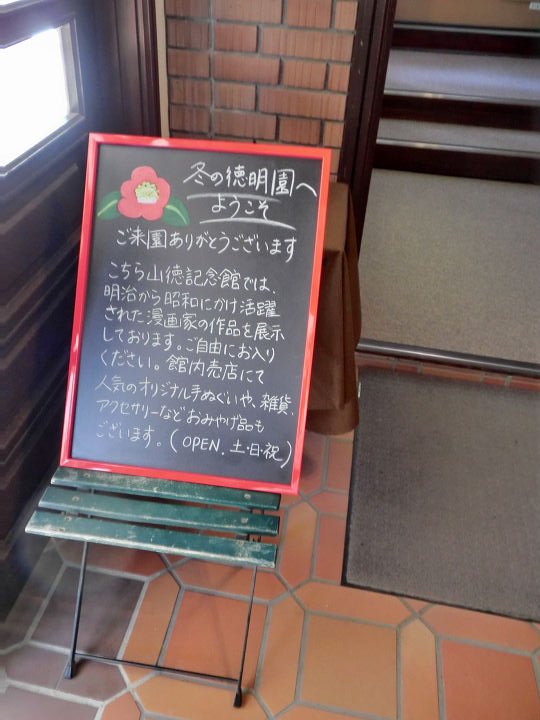 冬の徳明園へ
ようこそ
ご来園ありがとうございます
こちら山徳記念館では、
明治から昭和にかけ活躍
された漫画家の作品を展示
しております。ご自由にお入り
ください。館内売店にて
人気のオリジナル手ぬぐいや、雑貨、
アクセサリーなどおみやげ品も
ございます。(OPEN.土・日・祝)